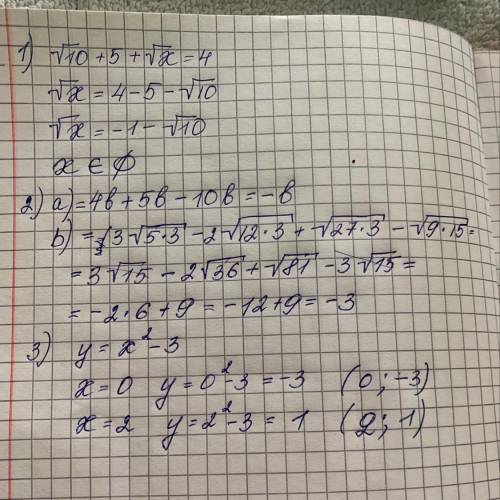 1) √10 + 5 + √x = 4
√x = 4 - 5 - √10
√x = -1 - √10
x ∈ ∅
2) a) = 4b + 5b - 10b = -b
b) = 3√5·3 - 2√12·3 + √27·3 - √9·15 =
= 3√15 - 2√36 + √81 - 3√15 =
= -2·6 + 9 = -12 + 9 = -3
3) y = x² - 3
x = 0 y = 0² - 3 = -3 (0; -3)
x = 2 y = 2² - 3 = 1 (2; 1)